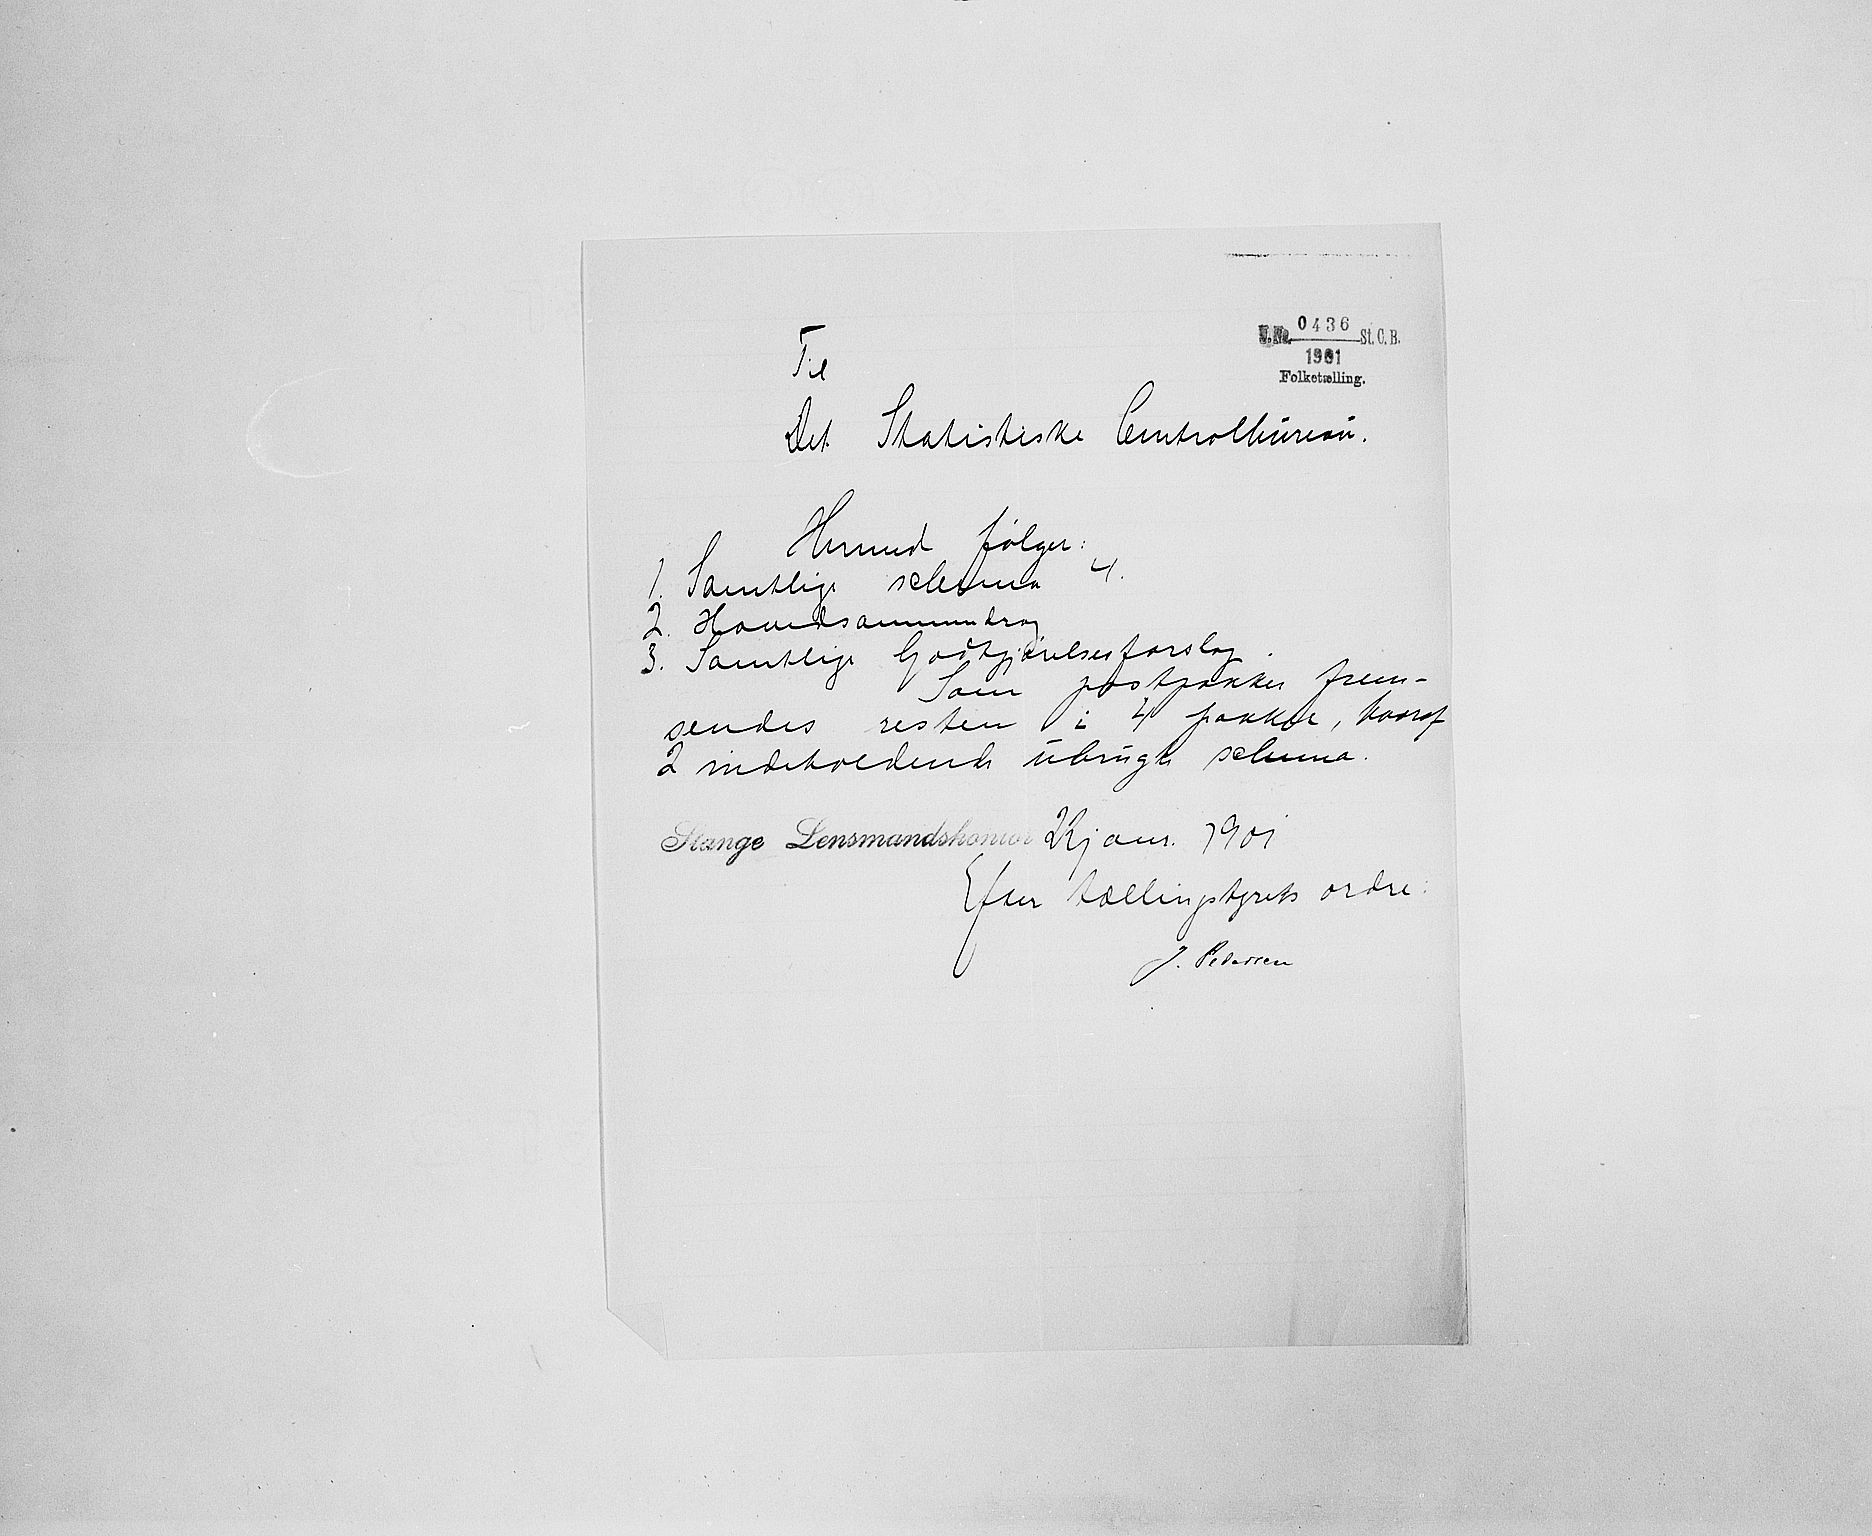 J. No. 0436 St. C. B.
1901
Folketælling.
Til
Det Statistiske Centralbüreaü.
Hermed følger:
1. Samtlige schema 4.
2. Hovedsammendrag
3. Samtlige Godtgjørelsesforslag.
Som postpakker frem-
sendes resten i 4 pakker, hvoraf
2 indeholdende übrugte schema.
Stange Lensmandskontor janr. 1901
Efter tællingstyrets ordre:
J. Pedersen